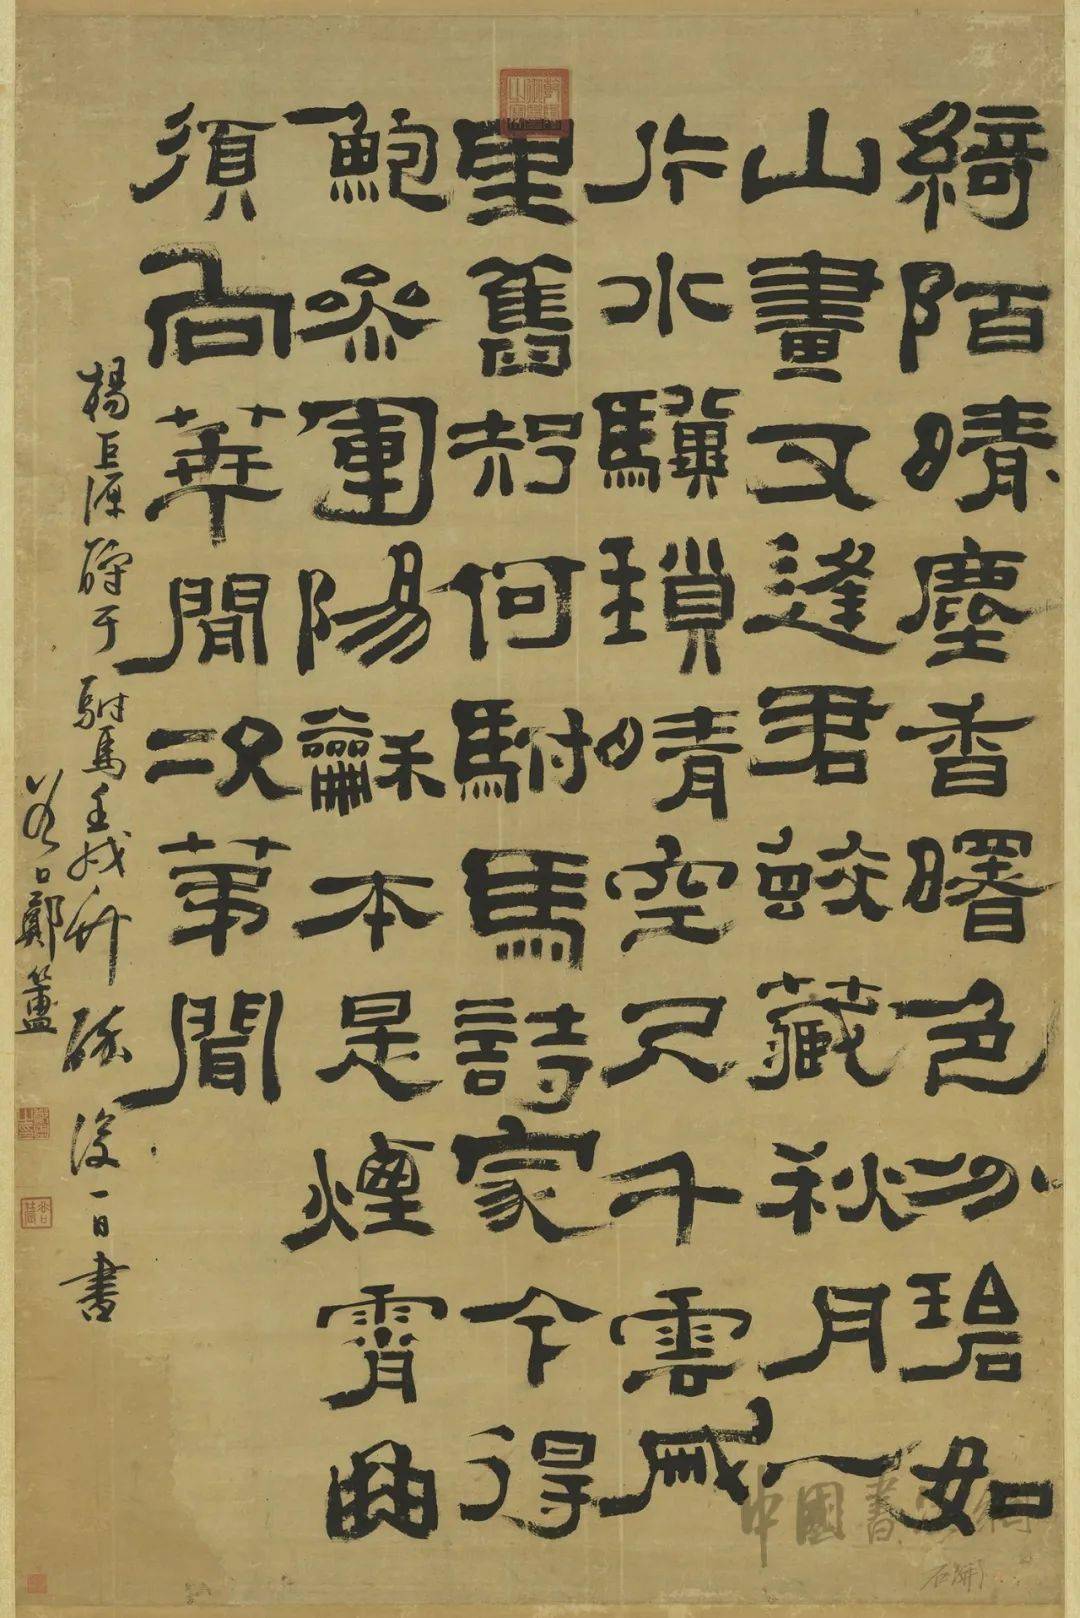 綺陌晴塵香曙色分碧如
山畫又逢君蛟藏秋月一
片水驥鎖晴空尺千雲戚
里舊知何駙馬詩家今得
鮑參軍陽龢本是煙霄曲
須向華間次第聞
楊巨源酬于駙馬壬戌竹醉後一日書
谷口鄭簠
中國書法網